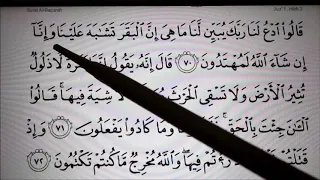 Surah Al-Baqarah
قَالُوا۟ ٱدْعُ لَنَا رَبَّكَ يُبَيِّن لَّنَا مَا هِىَ إِنَّ ٱلْبَقَرَ تَشَٰبَهَ عَلَيْنَا وَإِنَّآ
إِن شَآءَ ٱللَّهُ لَمُهْتَدُونَ ٧٠ قَالَ إِنَّهُۥ يَقُولُ لَا ذَلُولٌ
تُثِيرُ ٱلْأَرْضَ وَلَا تَسْقِى ٱلْحَرْثَ لَّا شِيَةَ فِيهَا ۚ قَالُوا۟
ٱلْـَٰٔنَ جِئْتَ بِٱلْحَقِّ ۚ وَمَا كَادُوا۟ يَفْعَلُونَ ٧١ وَإِذْ
قَتَلْتُمْ فِيهَا ۖ وَٱللَّهُ مُخْرِجٌ مَّا كُنتُمْ تَكْتُمُونَ ٧٢